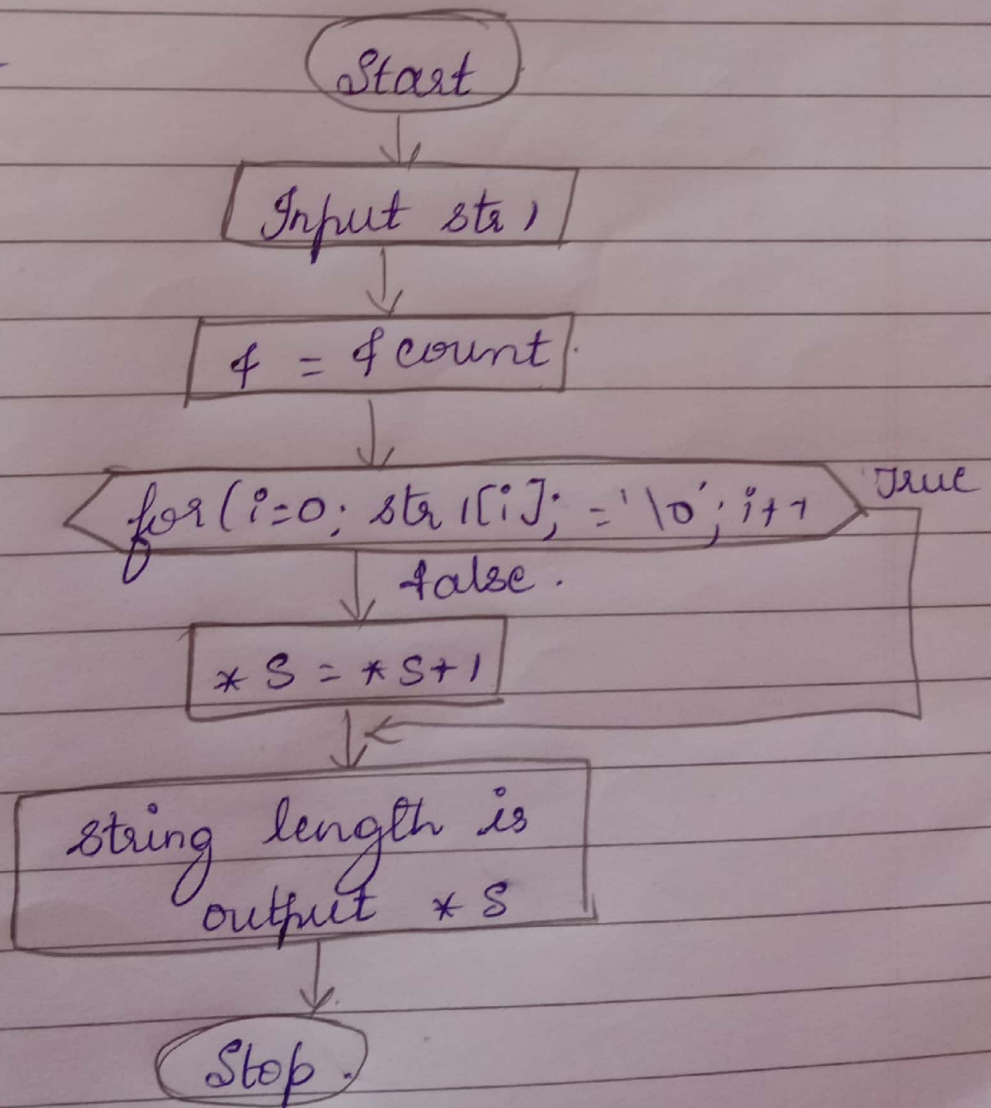 Start
Input str1
f = f count
for(i=0; str1[i]; ='\0'; i++
True
false.
*S = *S+1
string length is
output *S
Stop.